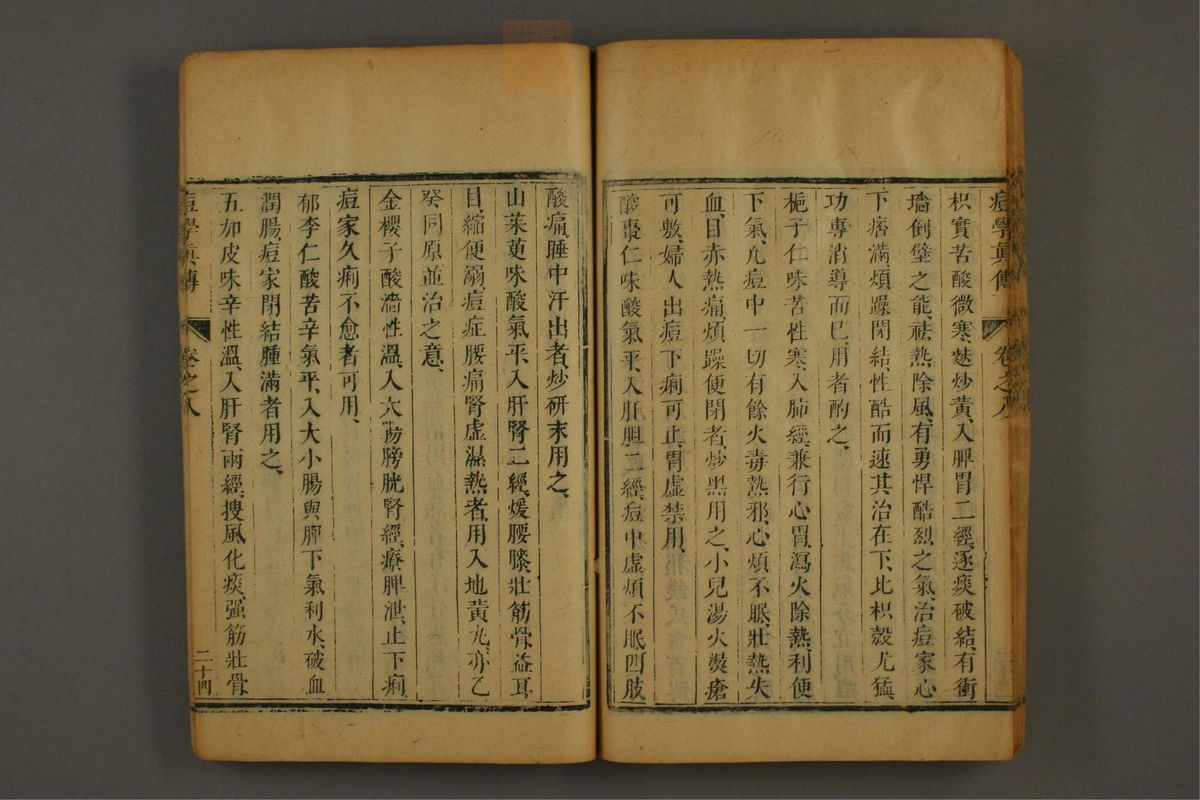 痘學眞傳　卷之八
枳實苦酸微寒、麩炒黃、入脾胃二經、逐痰破結、有衝
墻倒壁之能、祛熱除風、有勇悍酷烈之氣、治痘家心
下痞滿煩躁閉結、性酷而速、其治在下、比枳殼尤猛、
功專消導而已、用者酌之、
梔子仁味苦性寒、入肺經、兼行心胃、瀉火除熱、利便
下氣、凢痘中一切有餘火毒熱邪、心煩不眠、壯熱失
血、目赤熱痛、煩躁便閉者、炒黑用之、小兒湯火燙瘡
可敷、婦人出痘下痢可止、胃虛禁用、
酸棗仁味酸氣平、入肝胆二經、痘中虛煩不眠、四肢
酸痛、睡中汗出者、炒研末用之、
山茱萸味酸氣平、入肝腎二經、煖腰膝、壯筋骨、益耳
目、縮便溺、痘症腰痛腎虛濕熱者、用入地黃丸、亦乙
癸同原並治之意、
金櫻子酸濇性溫、入大腸膀胱腎經、療脾泄、止下痢、
痘家久痢不愈者可用、
郁李仁酸苦辛氣平、入大小腸與脾、下氣利水、破血
潤腸、痘家閉結腫滿者用之、
五加皮味辛性溫、入肝腎兩經、搜風化痰、强筋壯骨、
痘學眞傳　卷之八　二十四